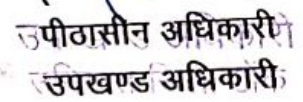 उपीठासीन अधिकारी
उपखण्ड अधिकारी